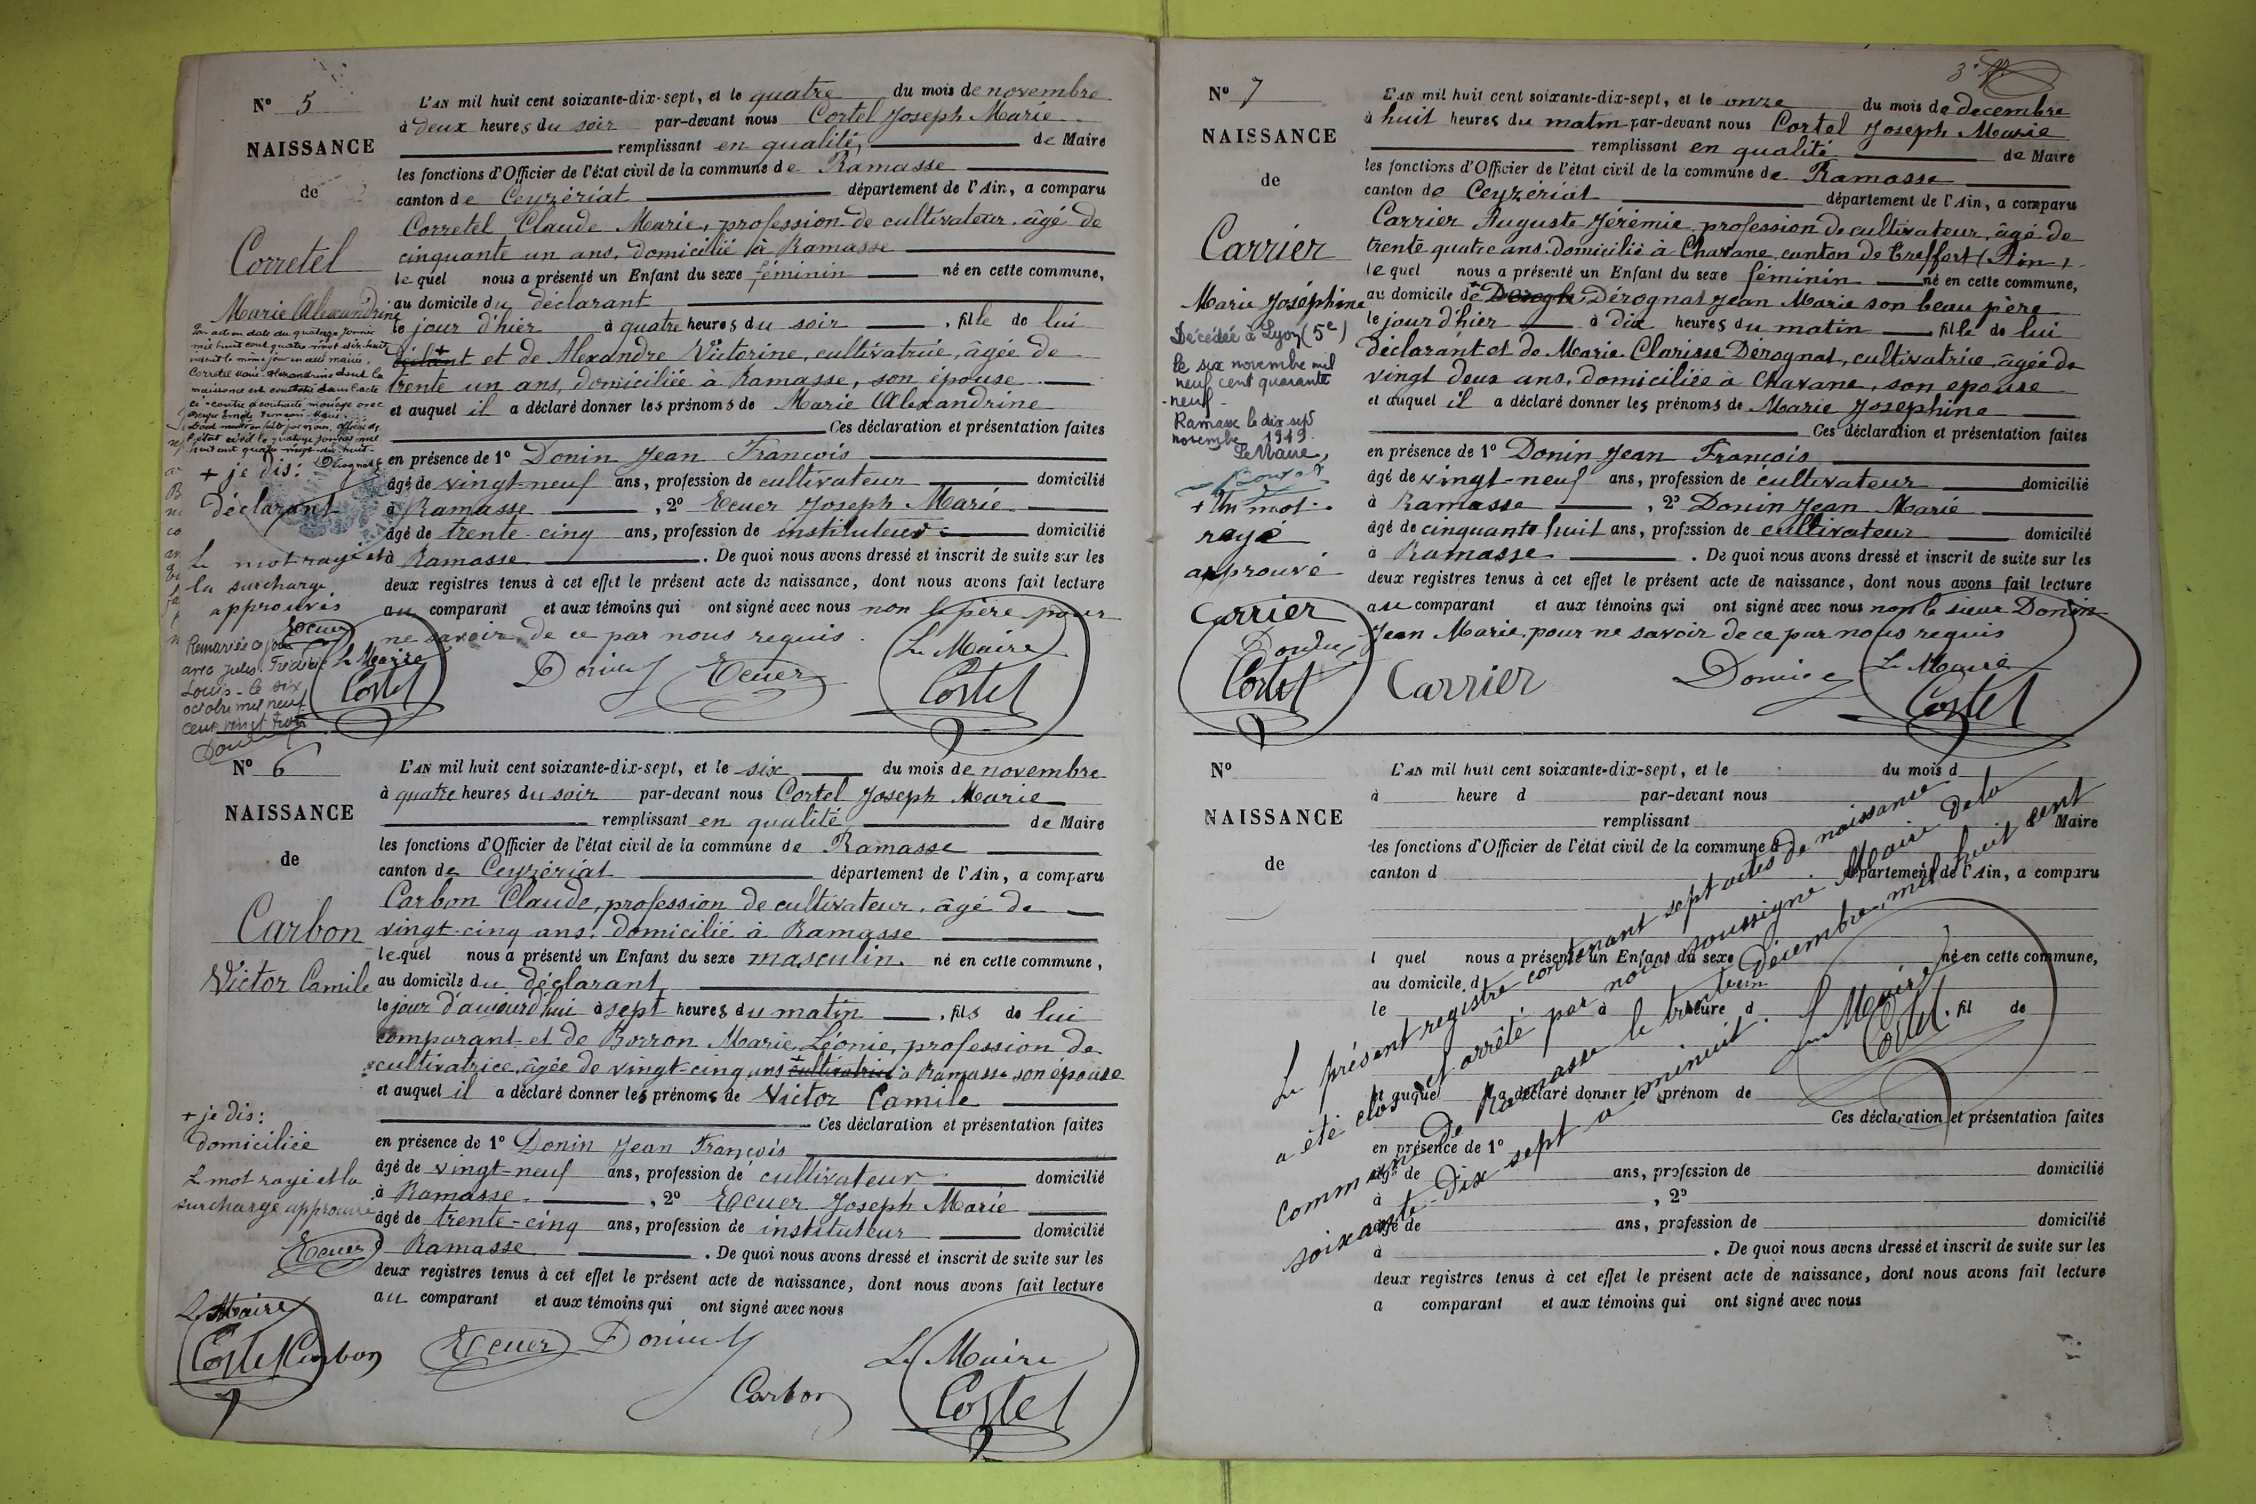 N° 5
NAISSANCE
de
Corretel
Marie Alexandrine
L'AN mil huit cent soixante-dix-sept, et le quatre du mois de novembre
à deux heures du soir par-devant nous Cortel Joseph Marie
remplissant en qualité de Maire
les fonctions d'Officier de l'état civil de la commune de Ramasse
canton de Ceyzériat département de l'Ain, a comparu
Corretel Claude Marie, profession de cultivateur, âgé de
cinquante un ans, domicilié à Ramasse
lequel nous a présenté un Enfant du sexe féminin né en cette commune,
au domicile du déclarant
le jour d'hier à quatre heures du soir, fille de lui
et de Alexandre Victorine, cultivatrice, âgée de
trente un ans, domiciliée à Ramasse, son épouse
et auquel il a déclaré donner les prénoms de Marie Alexandrine
Ces déclaration et présentation faites
en présence de 1° Donin Jean François
âgé de vingt-neuf ans, profession de cultivateur domicilié
à Ramasse, 2° Ecuer Joseph Marie
âgé de trente-cinq ans, profession de instituteur domicilié
à Ramasse. De quoi nous avons dressé et inscrit de suite sur les
deux registres tenus à cet effet le présent acte de naissance, dont nous avons fait lecture
au comparant et aux témoins qui ont signé avec nous non le père pour
ne savoir, de ce par nous requis.
Par acte en date du quatorze Janvier
mil huit cent quatre vingt dix-huit
inscrit le même jour en cette mairie,
Corretel Marie Alexandrine dont la
naissance est constatée dans l'acte
ci-contre a contracté mariage avec
l'état civil le quatorze Janvier mil
huit cent quatre vingt-dix-huit.
Dérognat
+ je dis:
déclarant
Le mot rayé et
la surcharge
approuvés
Ecuer
Le Maire
Cortel
Remariée ce jour
avec Jules Frédéric
Louis - le six
octobre mil neuf
cent vingt trois
Donin Ecuer Le Maire
Cortel
N° 6
NAISSANCE
de
Carbon
Victor Camile
L'AN mil huit cent soixante-dix-sept, et le six du mois de novembre
à quatre heures du soir par-devant nous Cortel Joseph Marie
remplissant en qualité de Maire
les fonctions d'Officier de l'état civil de la commune de Ramasse
canton de Ceyzériat département de l'Ain, a comparu
Carbon Claude, profession de cultivateur, âgé de
vingt-cinq ans, domicilié à Ramasse
lequel nous a présenté un Enfant du sexe masculin. né en cette commune,
au domicile du déclarant
le jour d'aujourd'hui à sept heures du matin, fils de lui
comparant et de Borron Marie Léonie, profession de
cultivatrice, âgée de vingt-cinq ans + cultivatrice à Ramasse son épouse
et auquel il a déclaré donner les prénoms de Victor Camile
Ces déclaration et présentation faites
en présence de 1° Donin Jean François
âgé de vingt-neuf ans, profession de cultivateur domicilié
à Ramasse, 2° Ecuer Joseph Marie
âgé de trente-cinq ans, profession de instituteur domicilié
à Ramasse. De quoi nous avons dressé et inscrit de suite sur les
deux registres tenus à cet effet le présent acte de naissance, dont nous avons fait lecture
au comparant et aux témoins qui ont signé avec nous
+ je dis:
domiciliée
Le mot rayé et la
surcharge approuvé
Ecuer
Le Maire
Cortel Carbon Ecuer Donin
Carbon
Le Maire
Cortel
N° 7
NAISSANCE
de
Carrier
Marie Joséphine
L'AN mil huit cent soixante-dix-sept, et le onze du mois de décembre
à huit heures du matin par-devant nous Cortel Joseph Marie
remplissant en qualité de Maire
les fonctions d'Officier de l'état civil de la commune de Ramasse
canton de Ceyzériat département de l'Ain, a comparu
Carrier Auguste Jérémie, profession de cultivateur, âgé de
trente quatre ans, domicilié à Chavane, canton de Treffort (Ain),
lequel nous a présenté un Enfant du sexe féminin né en cette commune,
au domicile de + Dérognat Jean Marie son beau père
le jour d'hier à dix heures du matin fille de lui
déclarant et de Marie Clarisse Dérognat, cultivatrice, âgée de
vingt deux ans, domiciliée à Chavane, son épouse
et auquel il a déclaré donner les prénoms de Marie Joséphine
Ces déclaration et présentation faites
en présence de 1° Donin Jean François
âgé de vingt-neuf ans, profession de cultivateur domicilié
à Ramasse, 2° Donin Jean Marie
âgé de cinquante huit ans, profession de cultivateur domicilié
à Ramasse. De quoi nous avons dressé et inscrit de suite sur les
deux registres tenus à cet effet le présent acte de naissance, dont nous avons fait lecture
au comparant et aux témoins qui ont signé avec nous non le sieur Donin
Jean Marie, pour ne savoir de ce par nous requis
Décédée à Lyon (5e)
le six novembre mil
neuf cent quarante
-neuf-
Ramasse le dix sept
novembre 1949.
Le Maire,
+ Un mot
rayé
approuvé
Carrier
Cortel
Carrier Donin Le Maire
Cortel
N°
NAISSANCE
de
L'AN mil huit cent soixante-dix-sept, et le du mois d
à heure d par-devant nous
remplissant Maire
les fonctions d'Officier de l'état civil de la commune d
canton d département de l'Ain, a comparu
l quel nous a présenté un Enfant du sexe né en cette commune,
au domicile d
le à heure d, fil de
et auquel a déclaré donner le prénom de
Ces déclaration et présentation faites
en présence de 1°
âgé de ans, profession de domicilié
à, 2°
âgé de ans, profession de domicilié
à. De quoi nous avons dressé et inscrit de suite sur les
deux registres tenus à cet effet le présent acte de naissance, dont nous avons fait lecture
a comparant et aux témoins qui ont signé avec nous
Le présent registre contenant sept actes de naissance
a été clos et arrêté par nous soussigné Maire de la
commune de Ramasse le trente un Décembre, mil huit cent
soixante-dix sept à minuit.
Le Maire
Cortel